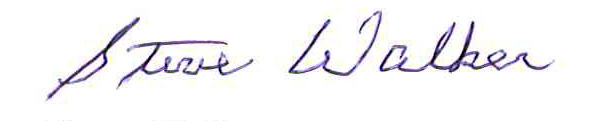 Steve Walker